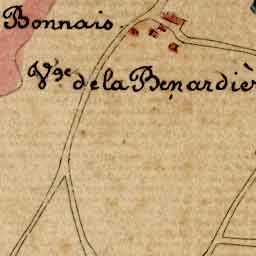 Bonnais.
Vge de la Benardiè